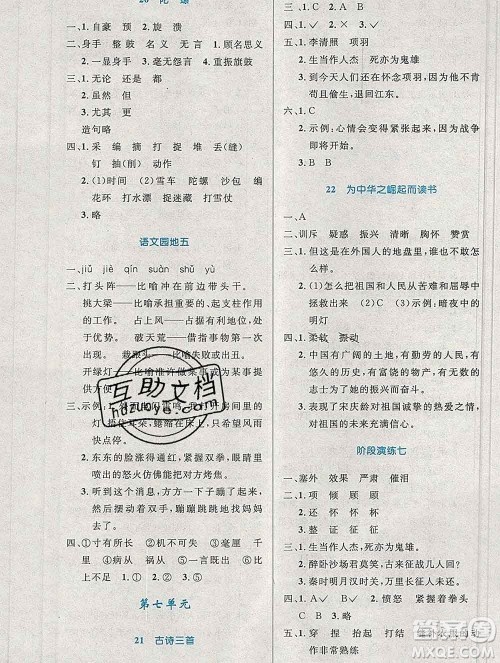 20 陀 螺
一、1.自豪 预卜 旋 溃
二、身手 整鼓 毫无言 1.顾名思义
2.大显身手 3.毫无怨言 4.重振旗鼓
三、1.无论 还是 都
2.虽然 但
3.尤其 更
造句略
四、1.采 编 摘 打 捉 堆 丢(缝)
钉 抽(削) 动作
2.(1)时间 雪 车 陀螺 沙包 滚
铁环 打水漂 捉蜻蜓 打雪仗
3.略
语文园地五
一、jiǔ jiè qín suàn shǔ yú
二、打头阵——比喻冲在前边带头干。
挑大梁——比喻承担重要的、起支柱作
用的工作。 占上风——占据有利地位,处
于优势。 破天荒——借指事物第一次
出现。 栽跟头——比喻
开绿灯——比喻准许做某事或为某事提
供方便。
三、示例:
灯 捂住耳朵,蜷缩在床上,不敢关
灯。
2.东东的脸胀得通红,紧握双拳,眼里
的怒火仿佛能把对方烤焦。
3.听到这个消息,他激动得大喊大叫,然
后摆动着双手,蹦蹦跳跳地向家跑
去。
四、①寸有所长 ②机不可失 ③毫厘 千
里 ④病从 祸从 ⑤一言既出
2.①⑤ ③ ② ④
第七单元
21 古诗三首
三、1.✓ 2.✗ 3.✓ 4.✓
五、1.李清照 项羽
2.生当作人杰 死亦为鬼雄
3.到今天人们还在怀念项羽,因为他不肯
苟且偷生,退回江东。
六、1.C
2.示例:心情会变得紧张起来,因为战争
即将开始。
3.B B
22 为中华之崛起而读书
一、A
二、训斥 疑惑 振兴 清晰 胸怀 赞赏
三、1.B
2.指的是在外国人的地盘里,谁又敢怎
么样呢?
3.(1)想把祖国和人民从苦难和屈辱中
拯救出来 (2)C (3)示例:暗夜中的
明灯
四、1.柔软 振动
2.中国有广阔的土地,有悠久的历史,有
勤劳、勇敢的人民,有无数的有为的
志士为了她的振兴而奋斗。
3.表现了宋庆龄对祖国诚挚的热爱之情,
对祖国充满自豪。
阶段演练七
一、塞外 效果 严肃 催泪
二、1.项 倾 顾 顾
2.晓 饶 浇 绕
3.整 征 证 征
三、1.生当作人杰,死亦为鬼雄。
2.醉卧沙场君莫笑,古来征战几人回?
3.秦时明月汉时关,万里长征人未还。
四、1.穿 拎 抬 打起 结
动作非常熟练
互助文档
hdzuoye.com